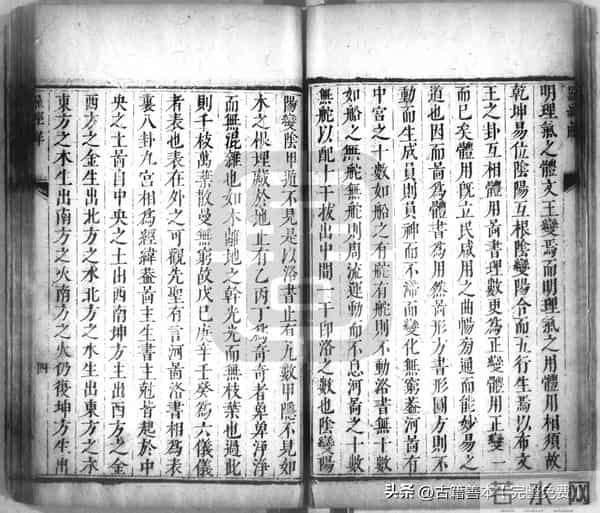 明理氣之體文王變焉而明理氣之用體用相須故
乾坤易位陰陽互根陰變陽合而五行生焉以布文
王之卦互相體用啚書理數更為正變體用正變一
而已矣體用既立民咸用之曲暢旁通而能妙易之
道也因而啚為體書為用然啚形方書形圓方則不
動而生成員則員神而不滯而變化無窮葢河啚有
中宮之十數如船之有舵有舵則不動洛書無十數
如船之無舵無舵則周流運動而不息河啚之十數
無舵以配十干拔出中間一干印洛之數也陰變陽
陽變陰甲遁不見是以洛書止有九數甲隱不見如
木之根埋藏於地止有乙丙丁為奇奇者卑卑淨淨
而無混雜也如木離地之幹光光而無枝葉也過此
則千枝萬葉散曼無窮故戊巳庚辛壬癸為六儀儀
者表也表在外之可觀先聖有言河啚洛書相為表
裏八卦九宮相為經緯葢啚主生書主剋皆起於中
央之土啚自中央之土出西南坤方主出西方之金
西方之金生出北方之水北方之水生出東方之木
東方之木生出南方之火南方之火仍復坤方生出
四
頭条 @古籍善本-完整免费